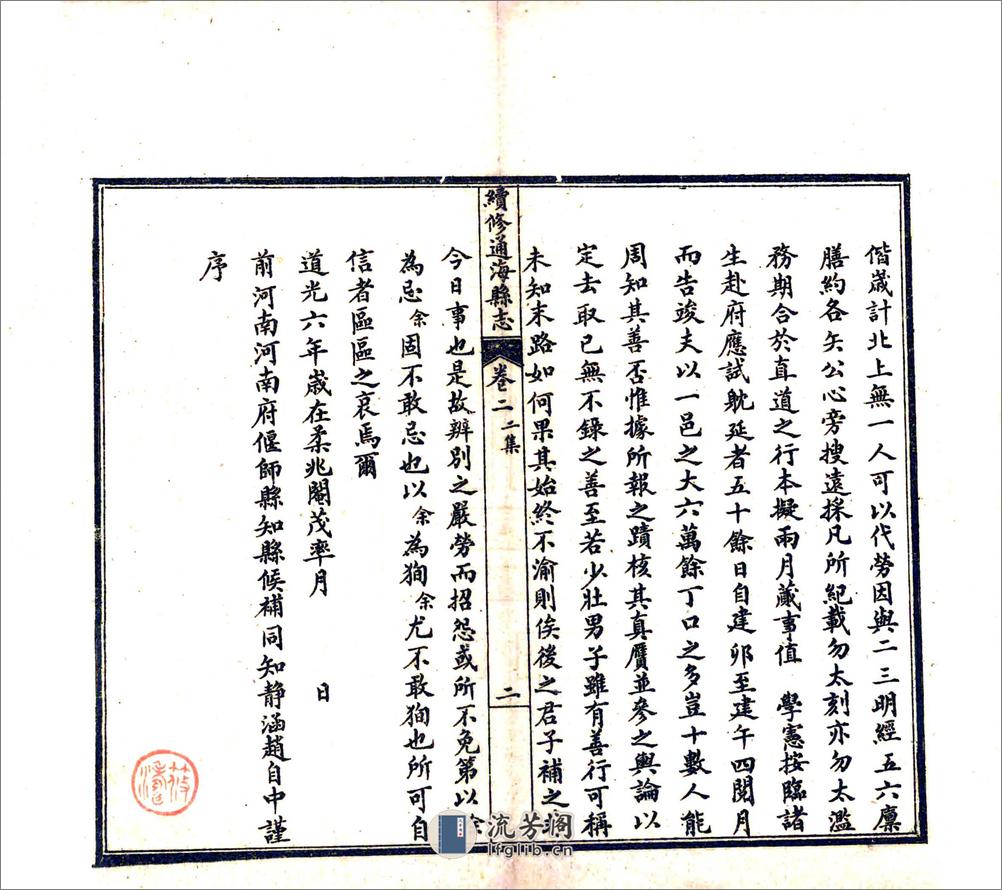 偕歲計北上無一人可以代勞因與二三明經五六廩
膳約各矢公心旁搜遠採凡所紀載勿太刻亦勿太濫
務期合於直道之行本擬兩月蕆事值　學憲按臨諸
生赴府應試躭延者五十餘日自建卯至建午四閱月
而告竣夫以一邑之大六萬餘丁口之多豈十數人能
周知其善否惟據所報之蹟核其真贋並參之輿論以
定去取已無不錄之善至若少壯男子雖有善行可稱
未知末路如何果其始終不渝則俟後之君子補之
續修通海縣志
卷二 二集
二
今日事也是故辨別之嚴勞而招怨或所不免第以余
為忌余固不敢忌也以余為狥余尤不敢狥也所可自
信者區區之衷焉爾
道光六年歲在柔兆閹茂率月　日
前河南河南府偃師縣知縣候補同知靜涵趙自中謹
序
流芳閣
lfglib.cn